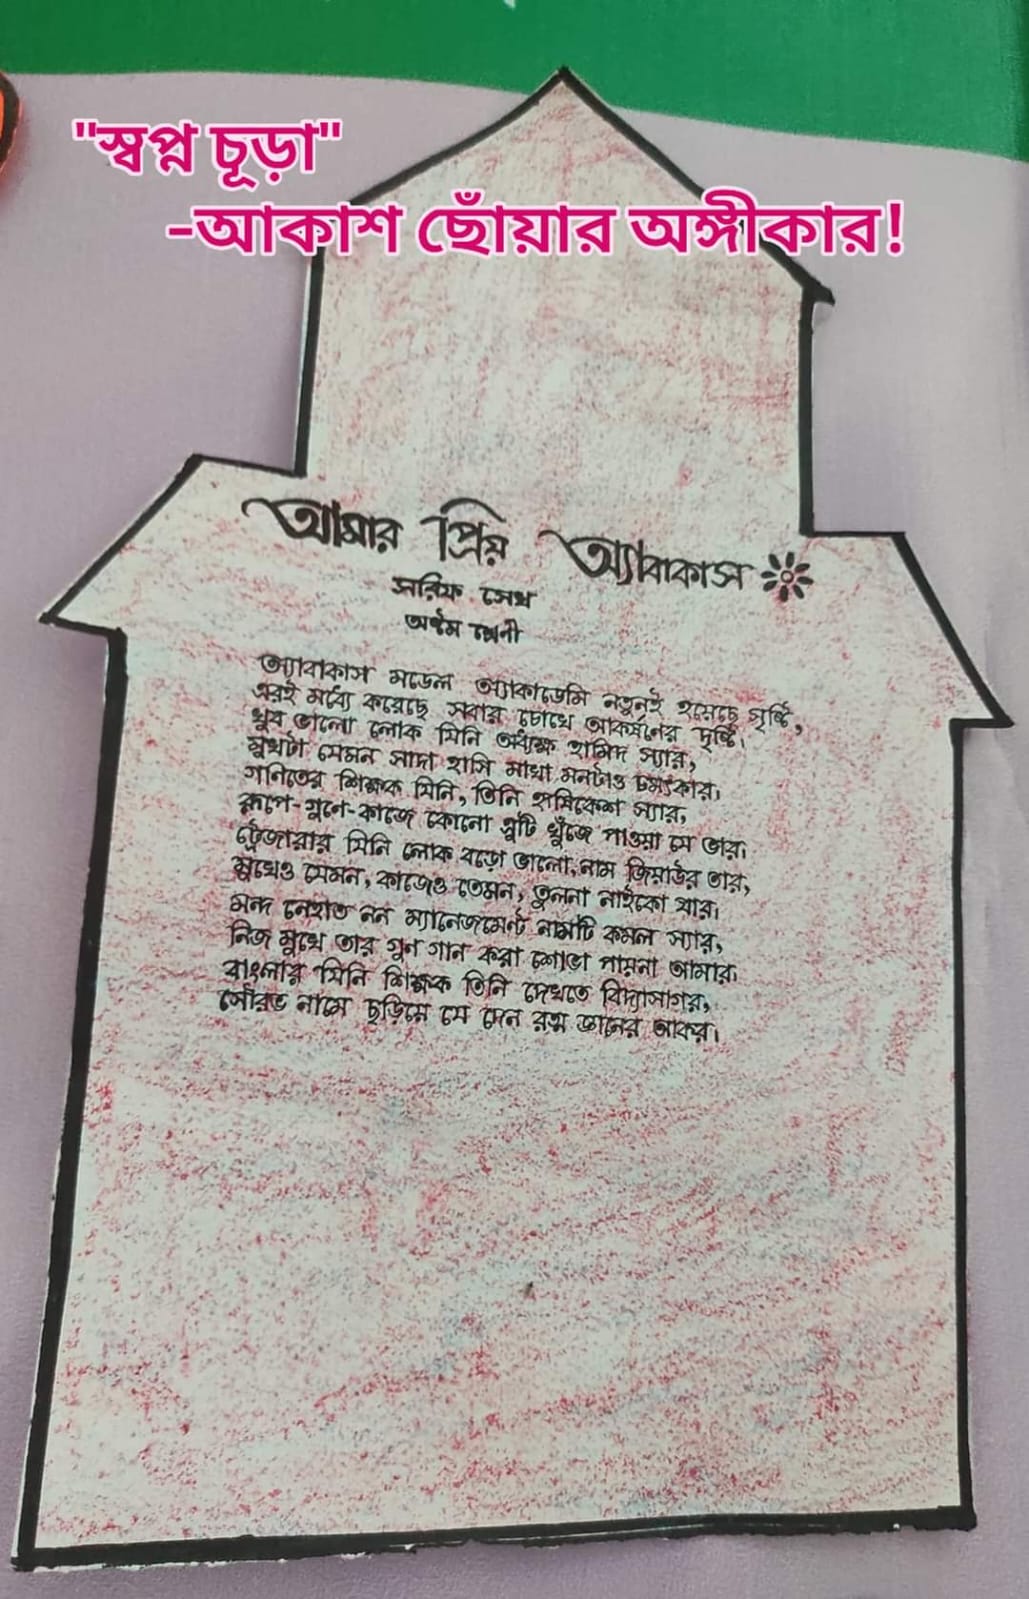 "স্বপ্ন চূড়া"
-আকাশ ছোঁয়ার অঙ্গীকার!
আমার প্রিয় অ্যাবাকাস
সরিফ সেখ
অষ্টম শ্রেণী
অ্যাবাকাস মডেল অ্যাকাডেমি নতুনই হয়েছে সৃষ্টি,
এরই মধ্যে করেছে সবার চোখে আকর্ষনের দৃষ্টি।
খুব ভালো লোক যিনি অধ্যক্ষ হামিদ স্যার,
মুখটা যেমন সাদা হাসি মাখা মনটাও চমৎকার।
গানিতের শিক্ষক যিনি, তিনি হৃষিকেশ স্যার,
রূপে-গুণে-কাজে কোনো ত্রুটি খুঁজে পাওয়া যে ভার।
ট্রেজারার যিনি লোক বড়ো ভালো, নাম জিয়াউর তার,
মুখেও যেমন, কাজেও তেমন, তুলনা নাইকো যার।
মন্দ নেহাত নন ম্যানেজমেন্ট নামটি কমল স্যার,
নিজ মুখে তার গুণ গান করা শোভা পায়না আমার।
বাংলার যিনি শিক্ষক তিনি দেখতে বিদ্যাসাগর,
সৌরভ নামে ছড়িয়ে যে দেন রত্ন জ্ঞানের আকর।